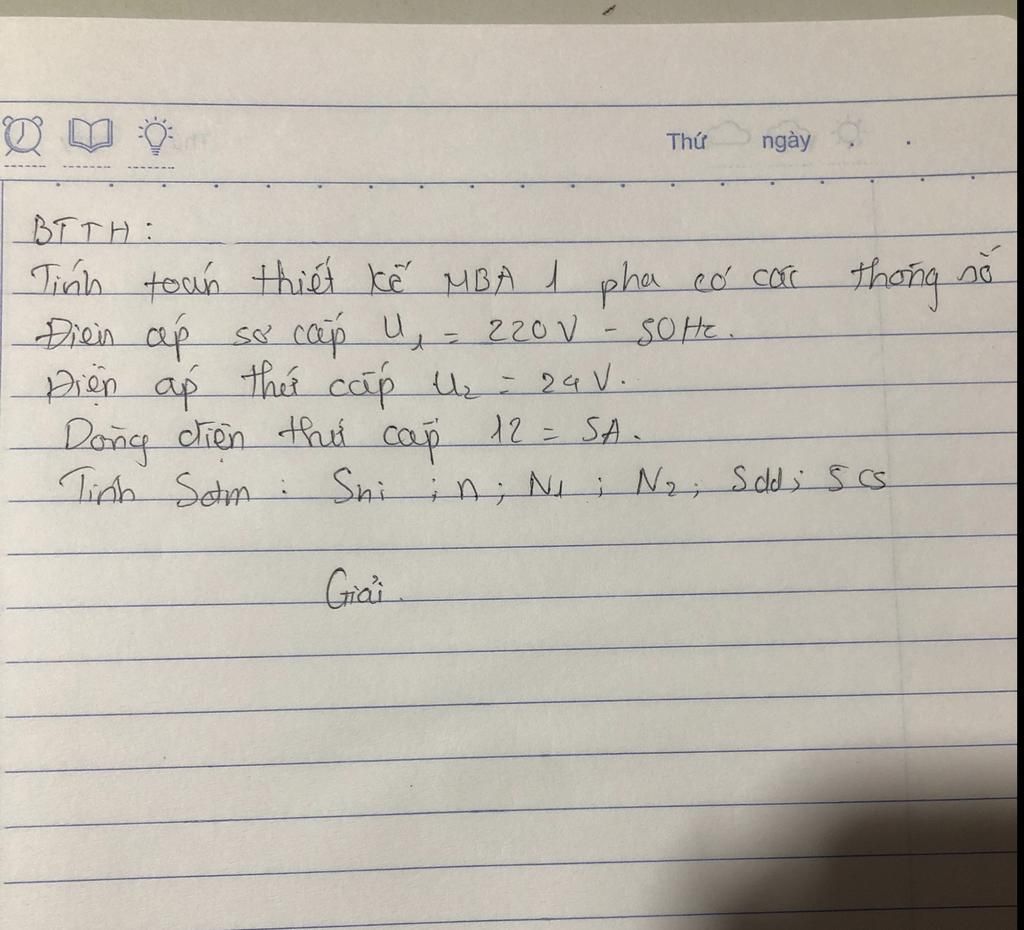 Thứ ngày
BTTH:
Tính toán thiết kế MBA 1 pha có các thông số
Điện áp sơ cấp U1 = 220V - 50Hz.
Điện áp thứ cấp U2 = 24V.
Dòng điện thứ cấp I2 = 5A.
Tính Sđm: Shi; n; N1; N2; Sdd; Scs
Giải.